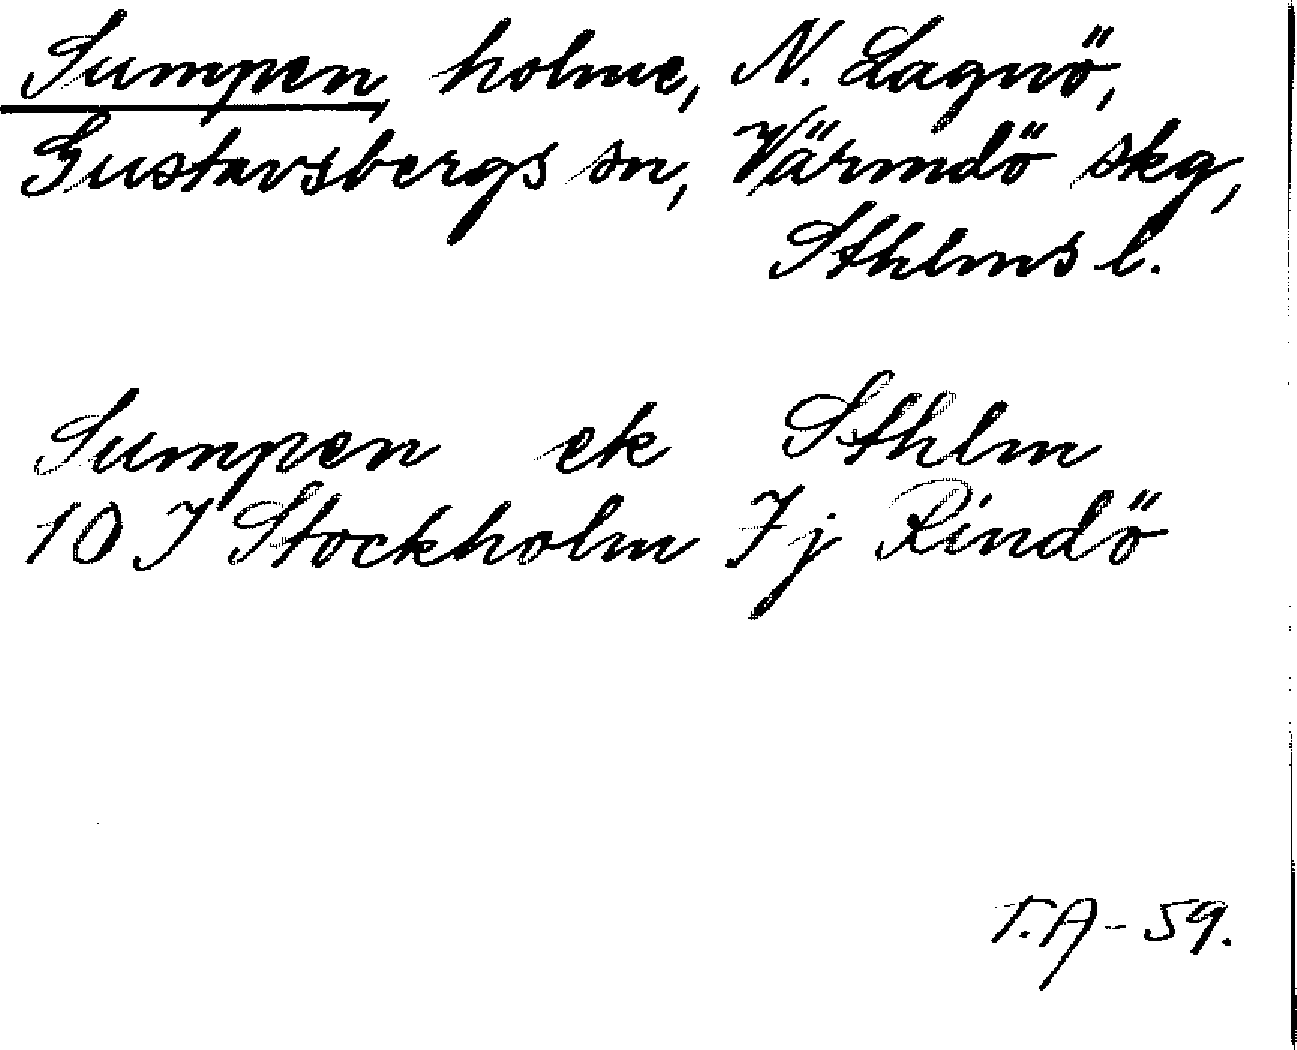 Sumpen, holme, N. Lagnö,
Gustavsbergs sn, Värmdö skg,
Sthlms l.
Sumpen ek Sthlm
10 I Stockholm 7j Rindö
T.A - 59.